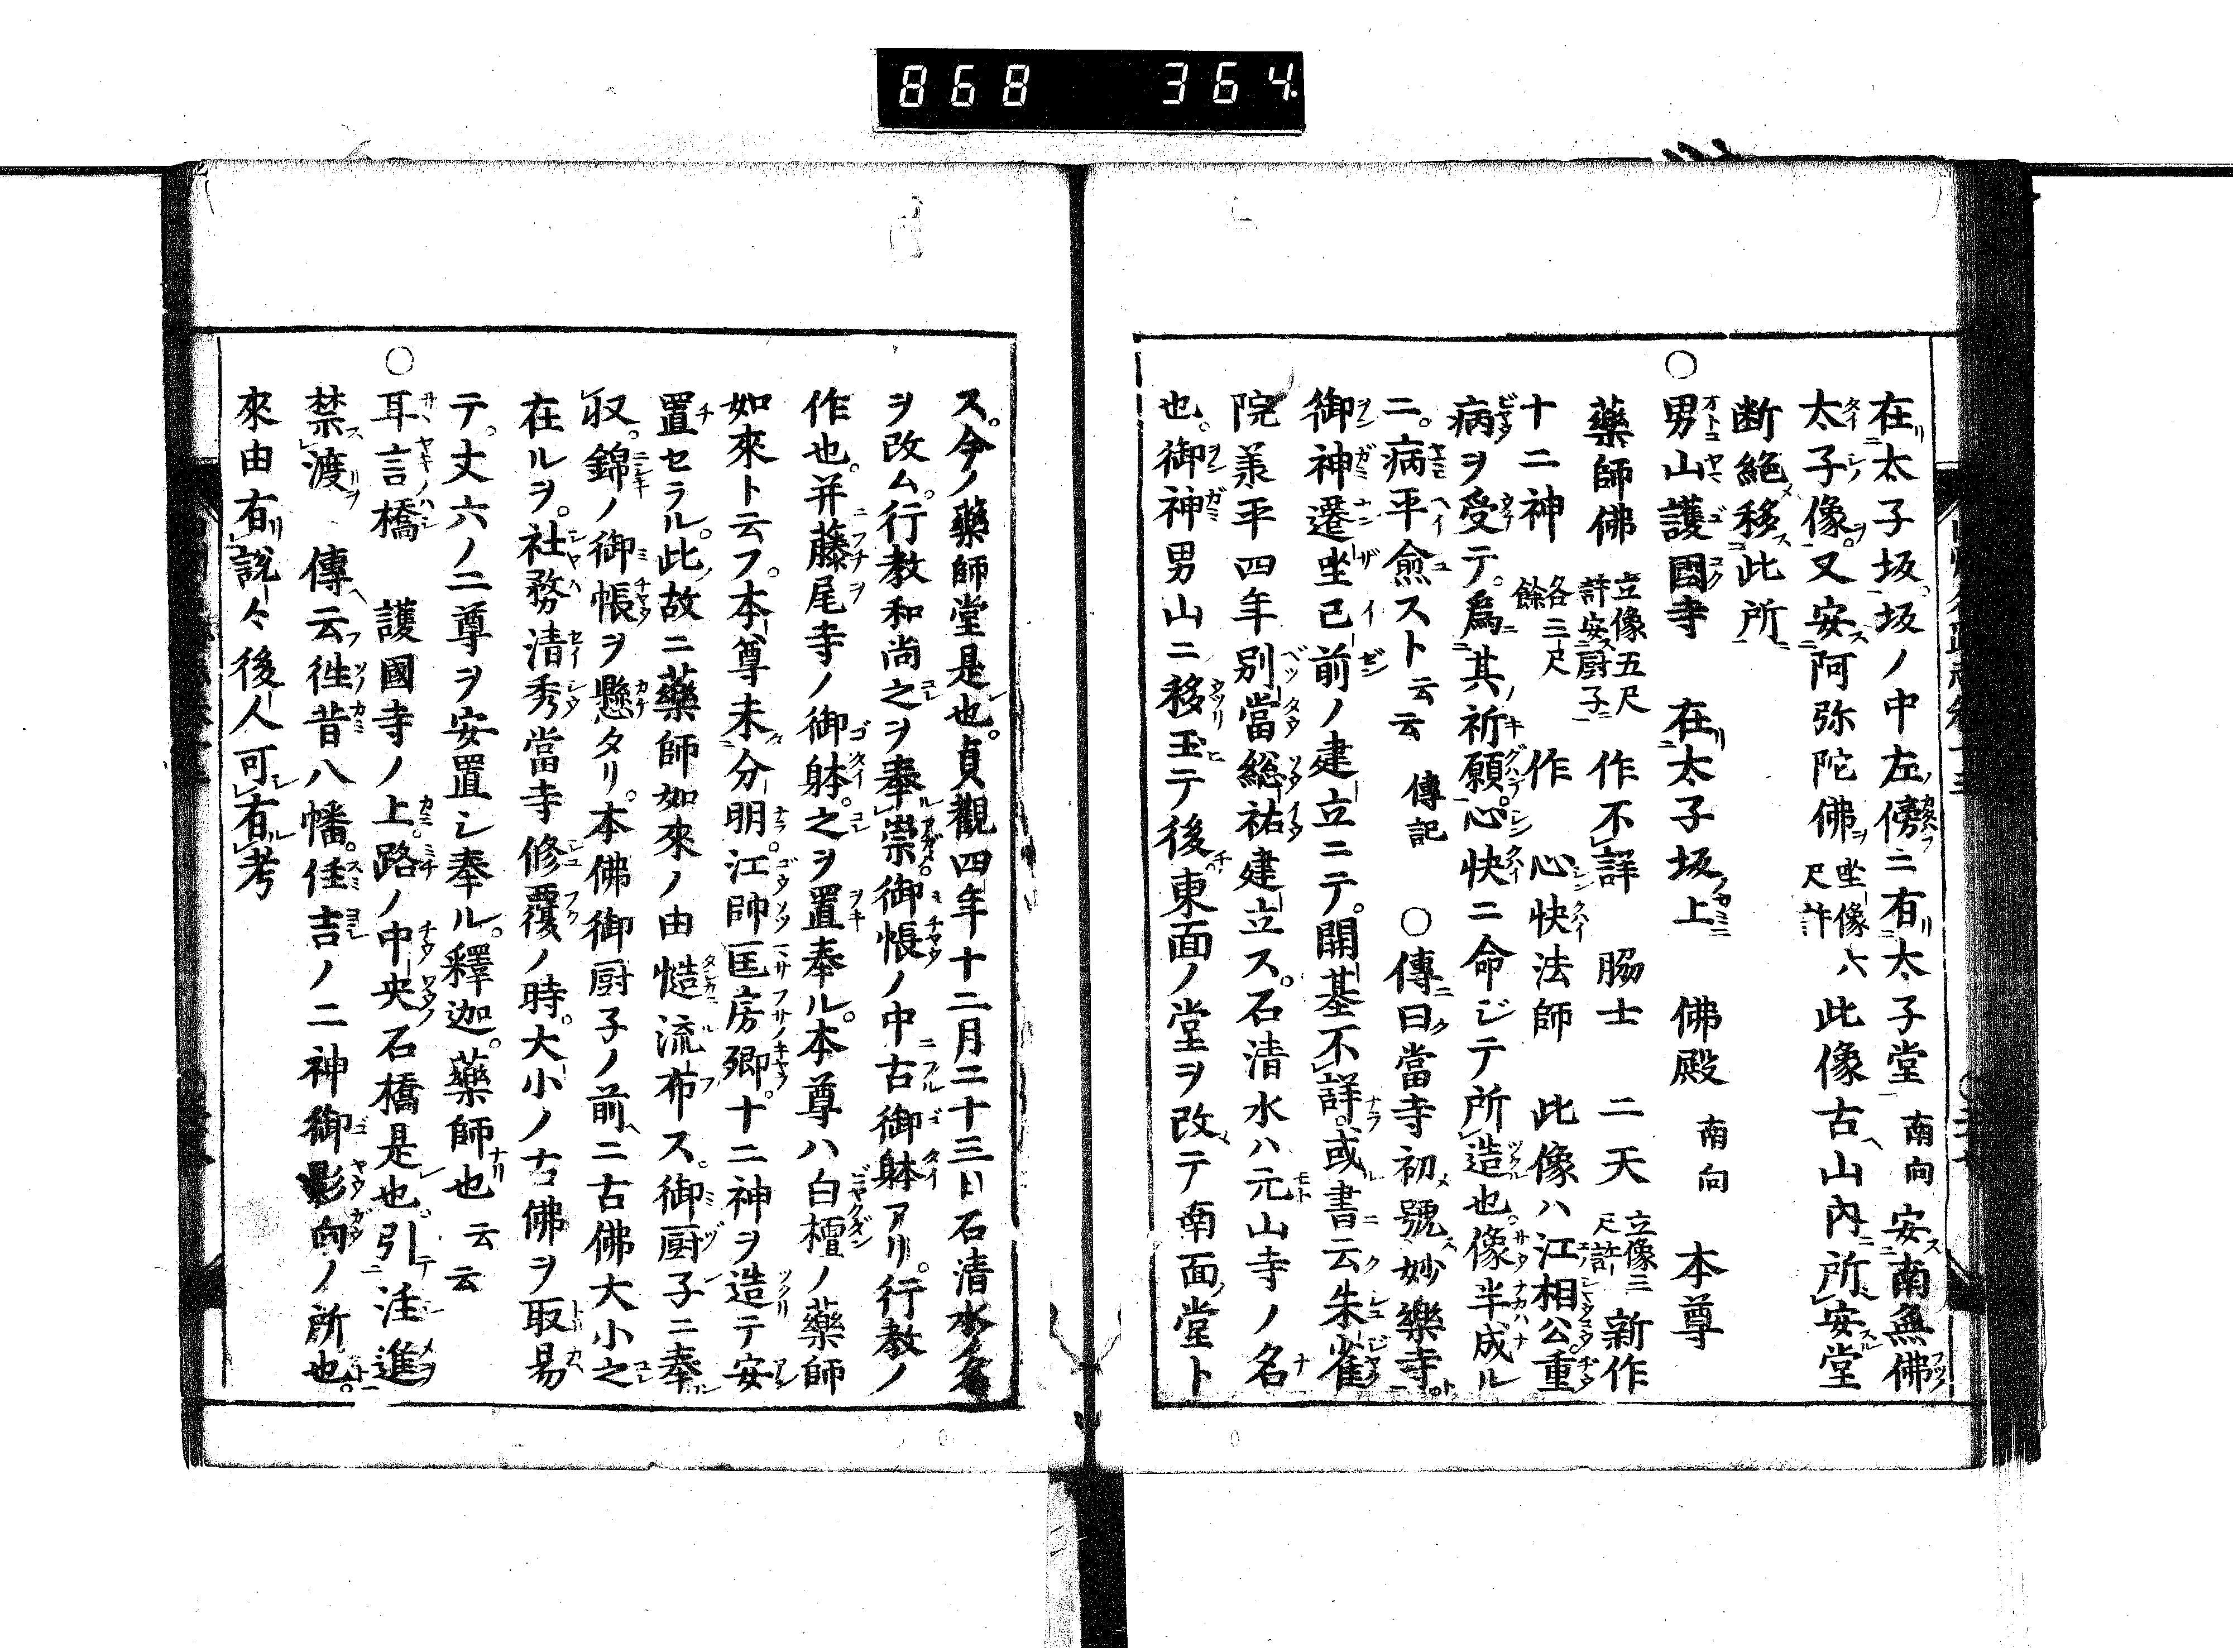 868 364
在太子坂。坂ノ中左傍ニ有太子堂 南向 安南無佛
太子像。又安阿弥陀佛 坐像八尺許 此像古山内所安堂
断絶移此所
○男山護國寺 在太子坂上 佛殿 南向 本尊
藥師佛 立像五尺許安厨子 作不詳 脇士 二天 立像三尺許 新作
十二神 各三尺餘 作 心快法師 此像ハ江相公重
病ヲ受テ。爲其祈願。心快ニ命ジテ所造也。像半成ル
ニ。病平愈スト云云 傳記 ○傳曰當寺初號妙樂寺。
御神遷坐已前ノ建立ニテ。開基不詳。或書云朱雀
院羕平四年別當総祐建立ス。石清水ハ元山寺ノ名
也。御神男山ニ移玉テ後東面ノ堂ヲ改テ南面堂ト
ス。今ノ藥師堂是也。貞觀四年十二月二十三日石清水ノ名
ヲ改ム。行教和尚之ヲ奉崇。御帳ノ中古御躰アリ。行教ノ
作也。并藤尾寺ノ御躰。之ヲ置奉ル。本尊ハ白檀ノ藥師
如來ト云フ。本尊未分明。江帥匡房卿。十二神ヲ造テ安
置セラル。此故ニ藥師如來ノ由慥流布ス。御厨子ニ奉
収。錦ノ御帳ヲ懸タリ。本佛御厨子ノ前ニ古佛大小之
在ルヲ。社務清秀當寺修覆ノ時。大小ノ古佛ヲ取易
テ。丈六ノ二尊ヲ安置シ奉ル。釋迦。藥師也 云云
○耳言橋 護國寺ノ上。路ノ中央石橋是也。引注進
禁渡 傳云徃昔八幡。住吉ノ二神御影向ノ所也。
來由有說々後人可有考